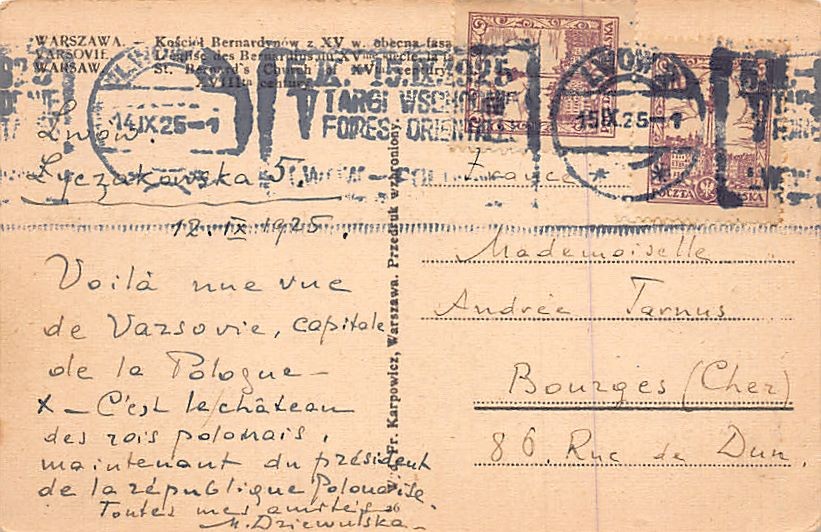 WARSZAWA. — Kościół Bernardynów z XV w. obecna fasa
VARSOVIE
WARSAW.
St. Bernard's Church of XVI century.
XVIIIth century.
LWÓW
14.IX.25-1
TARGI WSCHODNIE
FOIRES ORIENTALES
LWÓW
15.IX.25-1
POCZTA POLSKA
Lwów.
Łyczakowska 5.
12.IX 1925.
Voilà une vue
de Varsovie, capitale
de la Pologne —
X — C'est le château
des rois polonais,
maintenant du président
de la république Polonaise.
Toutes mes amitiés
M. Dziewulska
W. Fr. Karpowicz, Warszawa. Przedruk wzbroniony.
26
France
Mademoiselle
Andrée Tarnus
Bourges (Cher)
86. Rue de Dun.